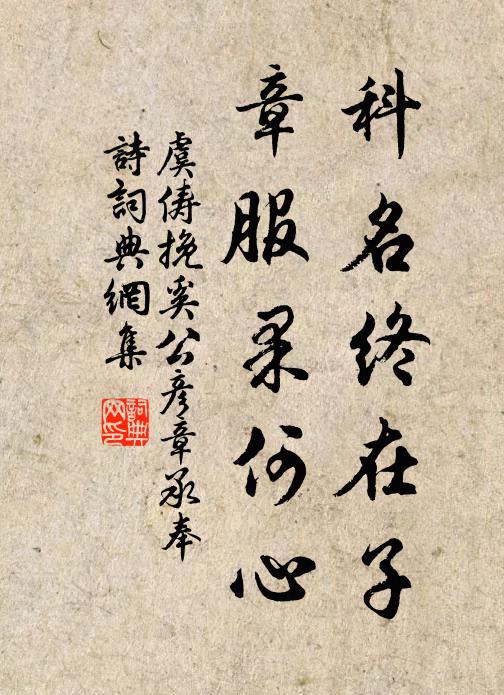 科名終在子
章服果何心
虞俦挽奚公彦章承奉
詩詞典網集
詞典网印